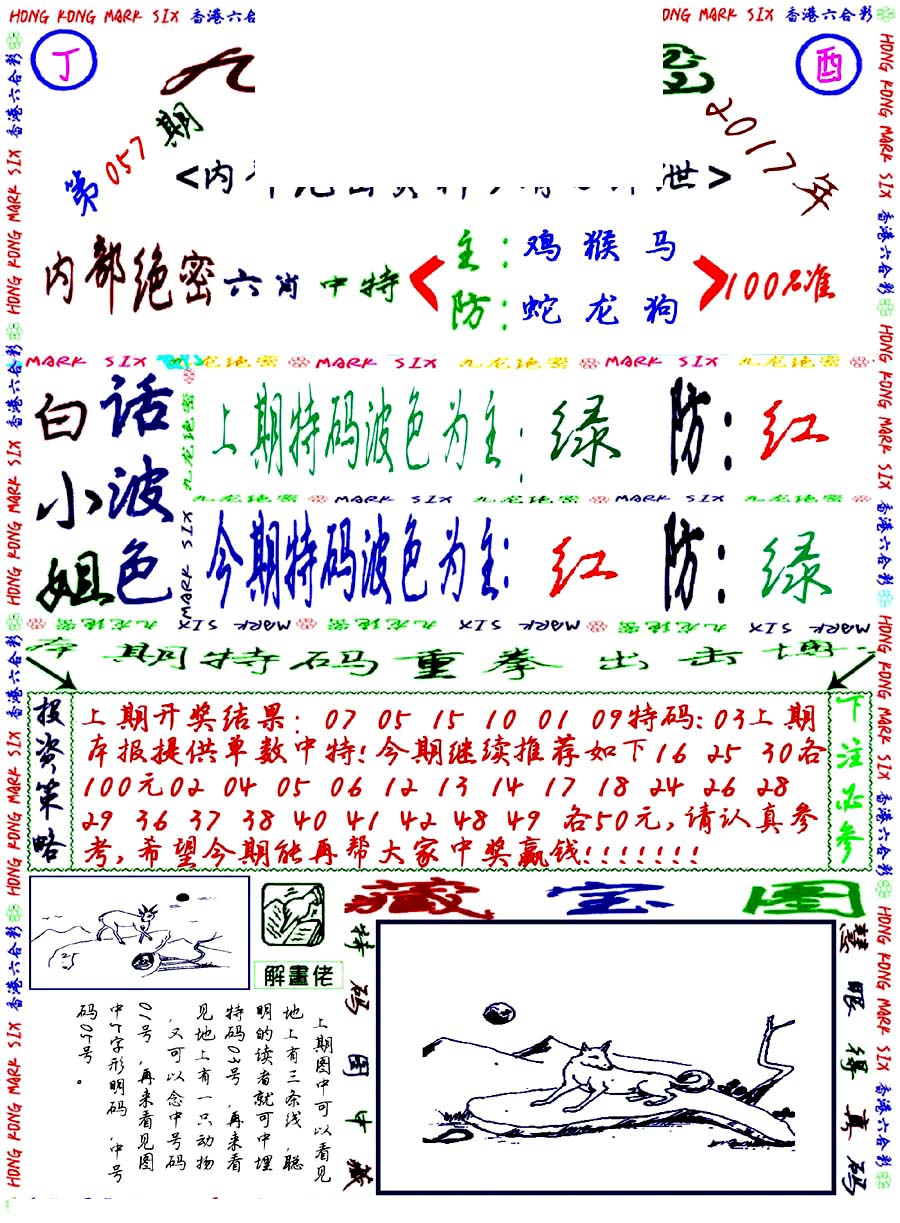 HONG KONG MARK SIX 香港六合彩
丁
酉
九
第057期
2017年
<内
世>
内部绝密六肖中特
主:鸡猴马
防:蛇龙狗
100%准
MARK SIX 九龙绝密 MARK SIX 九龙绝密 MARK SIX 九龙绝密
白话
小波
姐色
上期特码波色为主:绿 防:红
九龙绝密 MARK SIX 九龙绝密 MARK SIX 九龙绝密
今期特码波色为主:红 防:绿
九龙绝密 MARK SIX 九龙绝密 MARK SIX 九龙绝密 MARK SIX
本期特码重拳出击博
投资策略
上期开奖结果: 07 05 15 10 01 09特码:03上期
本报提供单数中特!今期继续推荐如下16 25 30各
100元02 04 05 06 12 13 14 17 18 24 26 28
29 36 37 38 40 41 42 48 49 各50元,请认真参
考,希望今期能再帮大家中奖赢钱!!!!!!!
下注必参
藏宝图
解畫佬
上期图中可以看见
地上有三条线,聪
明的读者就可中埋
特码03号,再来看
见地上有一只动物
,又可以念中号码
01号,再来看见图
中5字形明码,中号
码05号。
特码图中藏
慧眼得真码